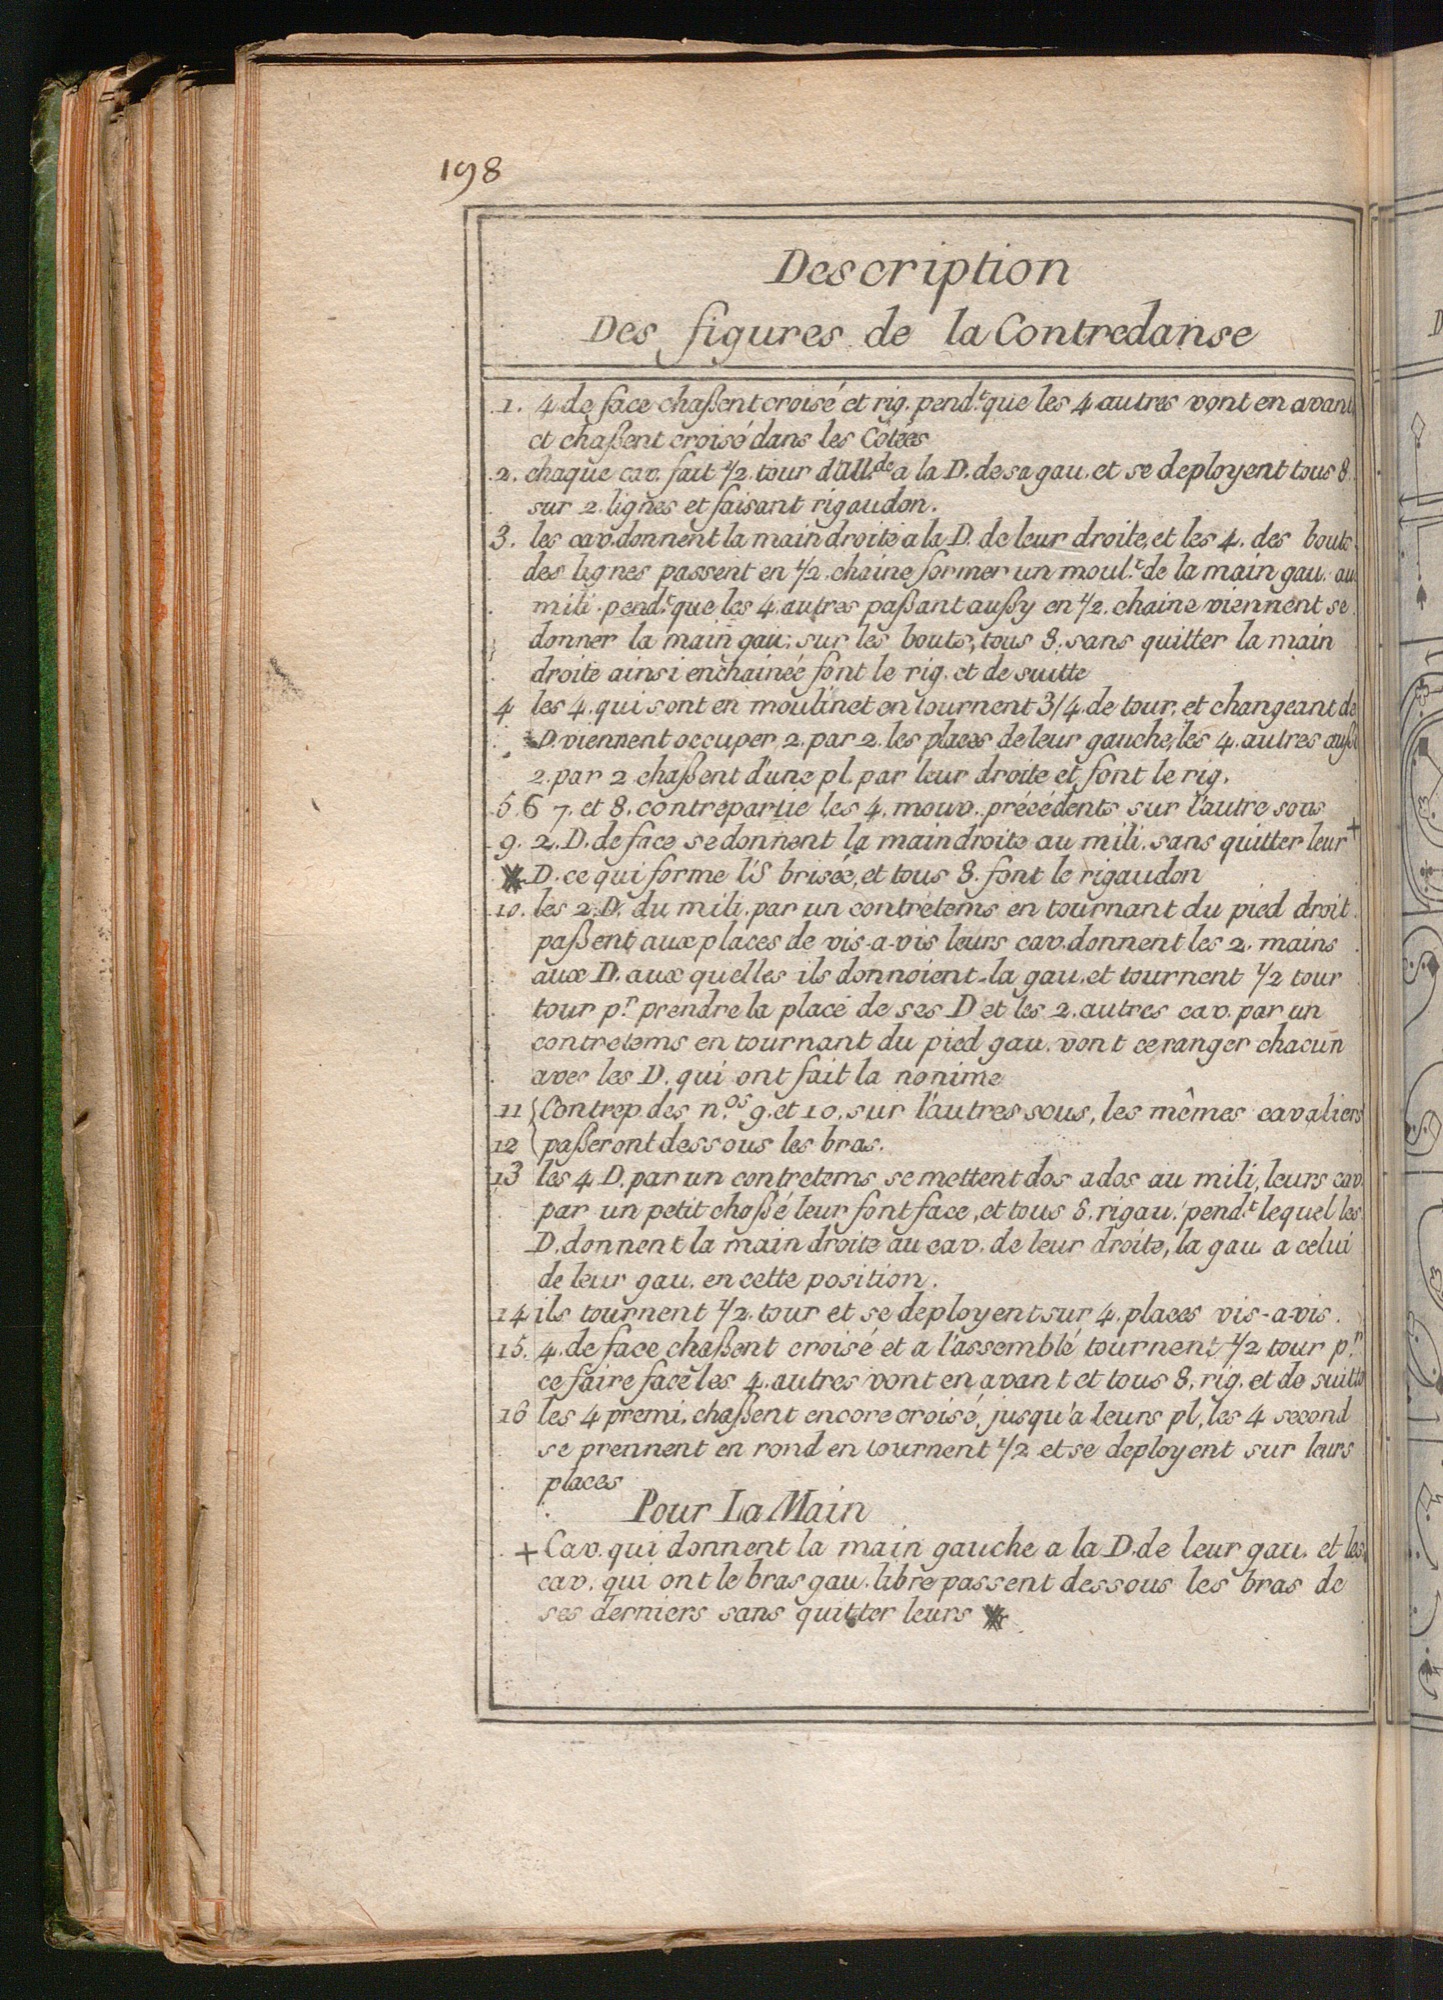 198
Description
Des figures de la Contredanse
1. 4 de face chaßent croisé et rig. pend.t que les 4 autres vont en avant
et chaßent croisé dans les Cotées
2. chaque cav. fait 1/2 tour d'All.de a la D. de sa gau. et se deployent tous 8
sur 2. lignes et faisant rigaudon.
3. les cav. donnent la main droite a la D. de leur droite, et les 4. des bouts
des lignes passent en 1/2. chaine former un moul.t de la main gau. au
mili. pend.t que les 4. autres paßant außy en 1/2. chaine viennent se
donner la main gau; sur les bouts, tous 8. sans quitter la main
droite ainsi enchainée font le rig. et de suitte
4 les 4. qui sont en moulinet en tournent 3/4. de tour, et changeant de
D. viennent occuper 2. par 2. les places de leur gauche, les 4. autres außi
2. par 2 chaßent d'une pl. par leur droite et font le rig.
5 6 7. et 8. contrepartie les 4. mouv. précédents sur l'autre sens
9. 2. D. de face se donnent la main droite au mili. sans quitter leur +
* D. ce qui forme l'S brisée, et tous 8. font le rigaudon
10. les 2. D. du mili. par un contretems en tournant du pied droit
paßent aux places de vis-a-vis leurs cav. donnent les 2. mains
aux D. aux quelles ils donnoient la gau. et tournent 1/2 tour
tour p.r prendre la place de ses D et les 2. autres cav. par un
contretems en tournant du pied gau. vont ce ranger chacun
avec les D. qui ont fait la nonime
11 { Contrep. des n.os 9. et 10. sur l'autres sous, les mêmes cavaliers
12 { paßeront dessous les bras.
13 les 4 D. par un contretems se mettent dos a dos au mili, leurs cav.
par un petit chaßé leur font face, et tous 8. rigau. pend.t lequel les
D. donnent la main droite au cav. de leur droite, la gau. a celui
de leur gau. en cette position.
14 ils tournent 1/2. tour et se deployent sur 4. places vis-a-vis.
15. 4. de face chaßent croisé et a l'assemblé tournent 1/2 tour p.r
ce faire face les 4. autres vont en avant et tous 8. rig. et de suitte
16 les 4 premi. chaßent encore croisé, jusqu'a leurs pl, les 4 second
se prennent en rond en tournent 1/2 et se deployent sur leurs
places
Pour La Main
+ Cav. qui donnent la main gauche a la D. de leur gau. et les
cav. qui ont le bras gau. libre passent dessous les bras de
ses derniers sans quitter leurs *